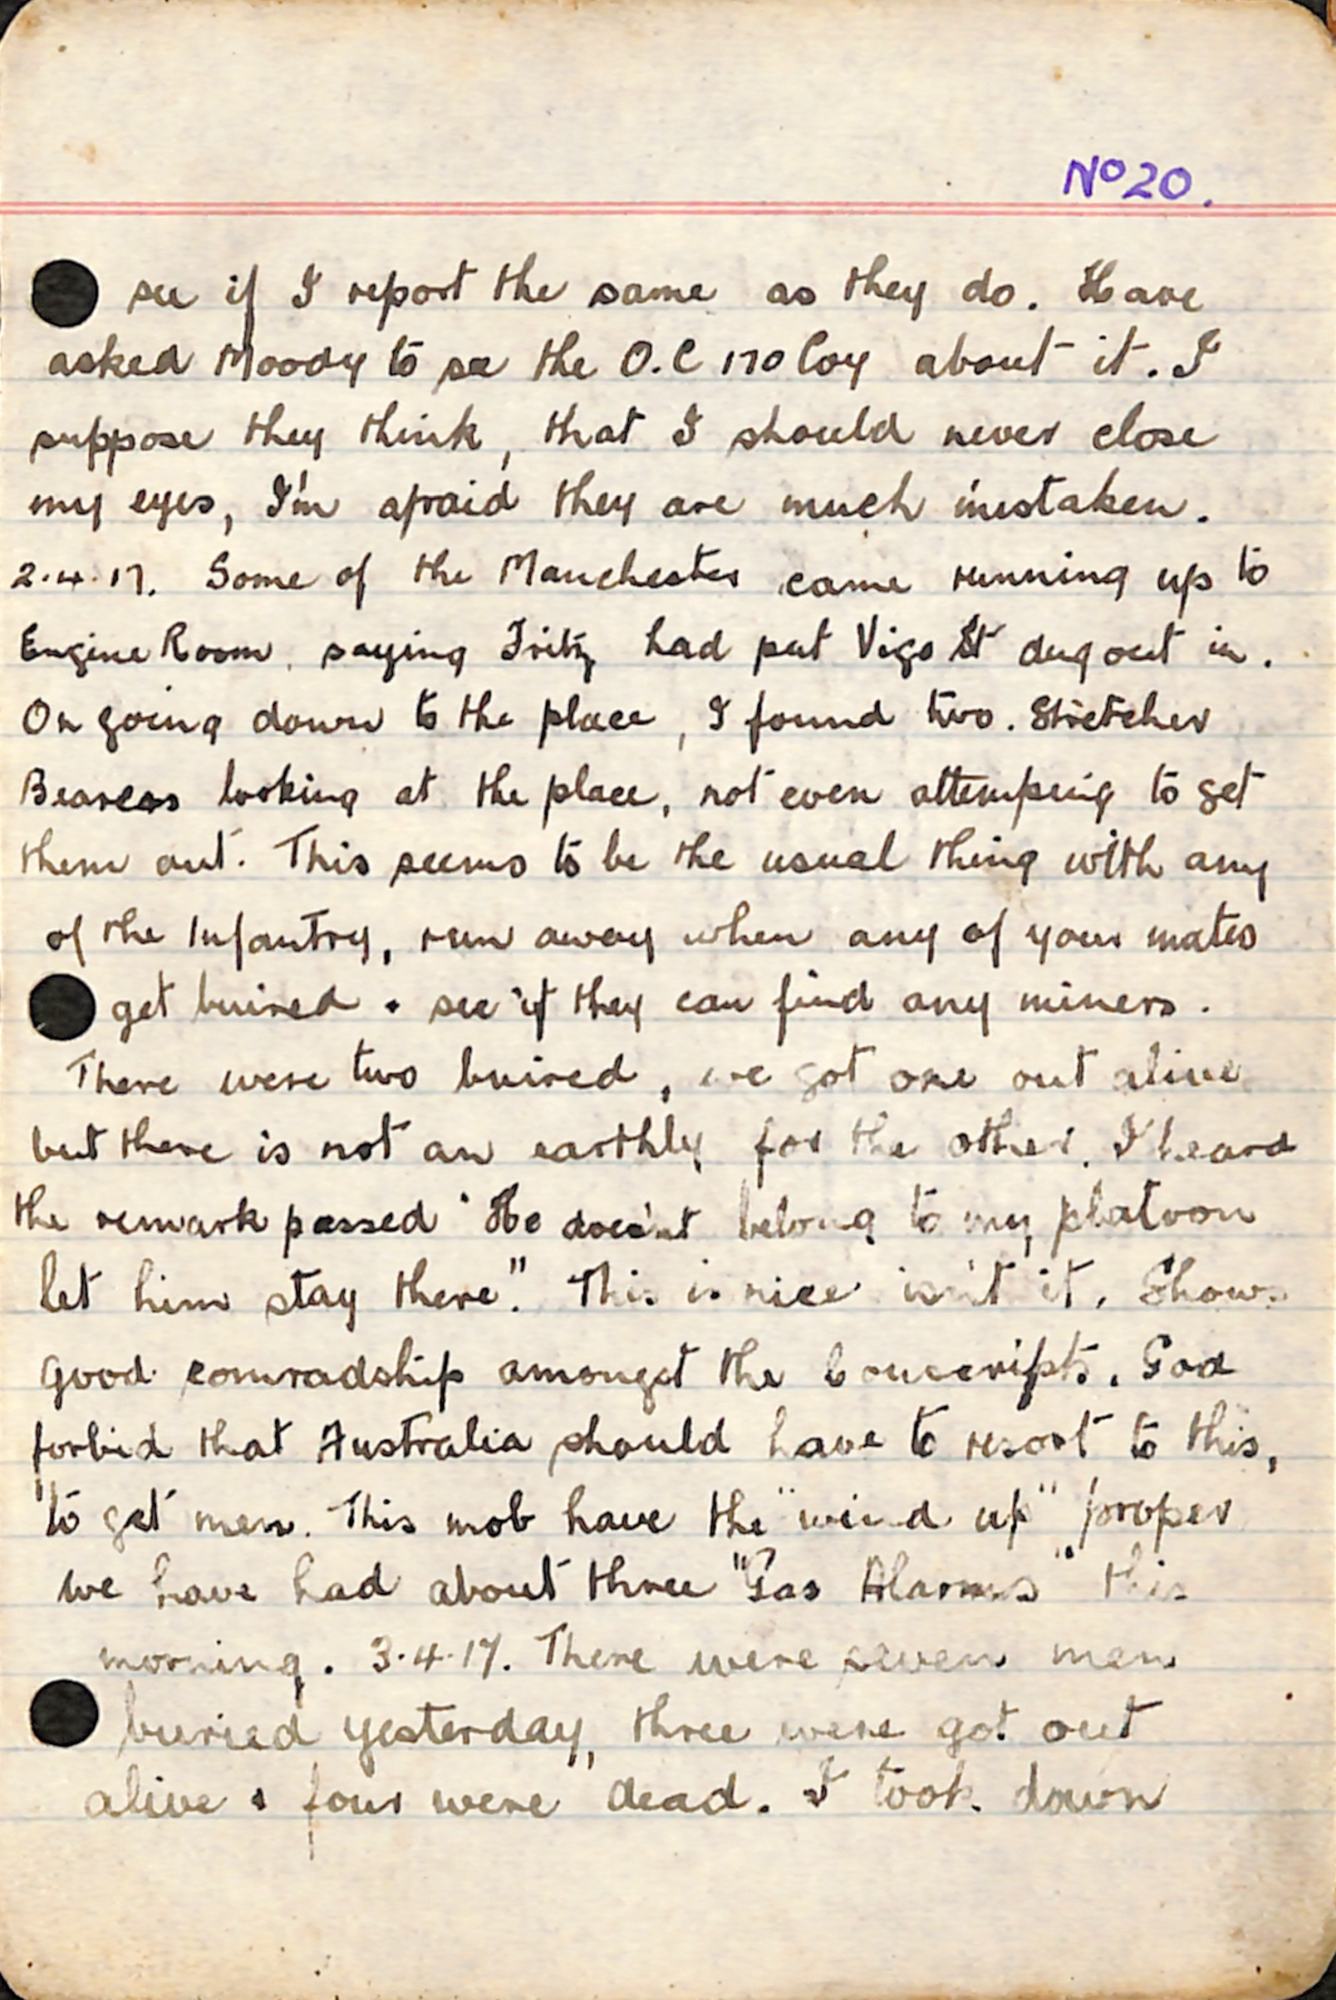 Nº 20.
see if I report the same as they do. Have
asked Moody to see the O.C 170 Coy about it. I
suppose they think, that I should never close
my eyes, I'm afraid they are much mistaken.
2.4.17. Some of the Manchester came running up to
Engine Room, saying Fritz had put Vigo St dugout in.
On going down to the place, I found two. Stretcher
Bearers looking at the place, not even attemping to get
them out. This seems to be the usual thing with any
of the Infantry, run away when any of your mates
get buired & see if they can find any miners.
There were two buired, we got one out alive
but there is not an earthly for the other. I heard
the remark passed "He does'nt belong to my platoon
let him stay there". This is nice isn't it. Shows
good comradship amongst the Conscripts. God
forbid that Australia should have to resort to this,
to get men. This mob have the "wind up" proper
we have had about three "Gas Alarms" this
morning. 3.4.17. There were seven men
buried yesterday, three were got out
alive & four were dead. I took down